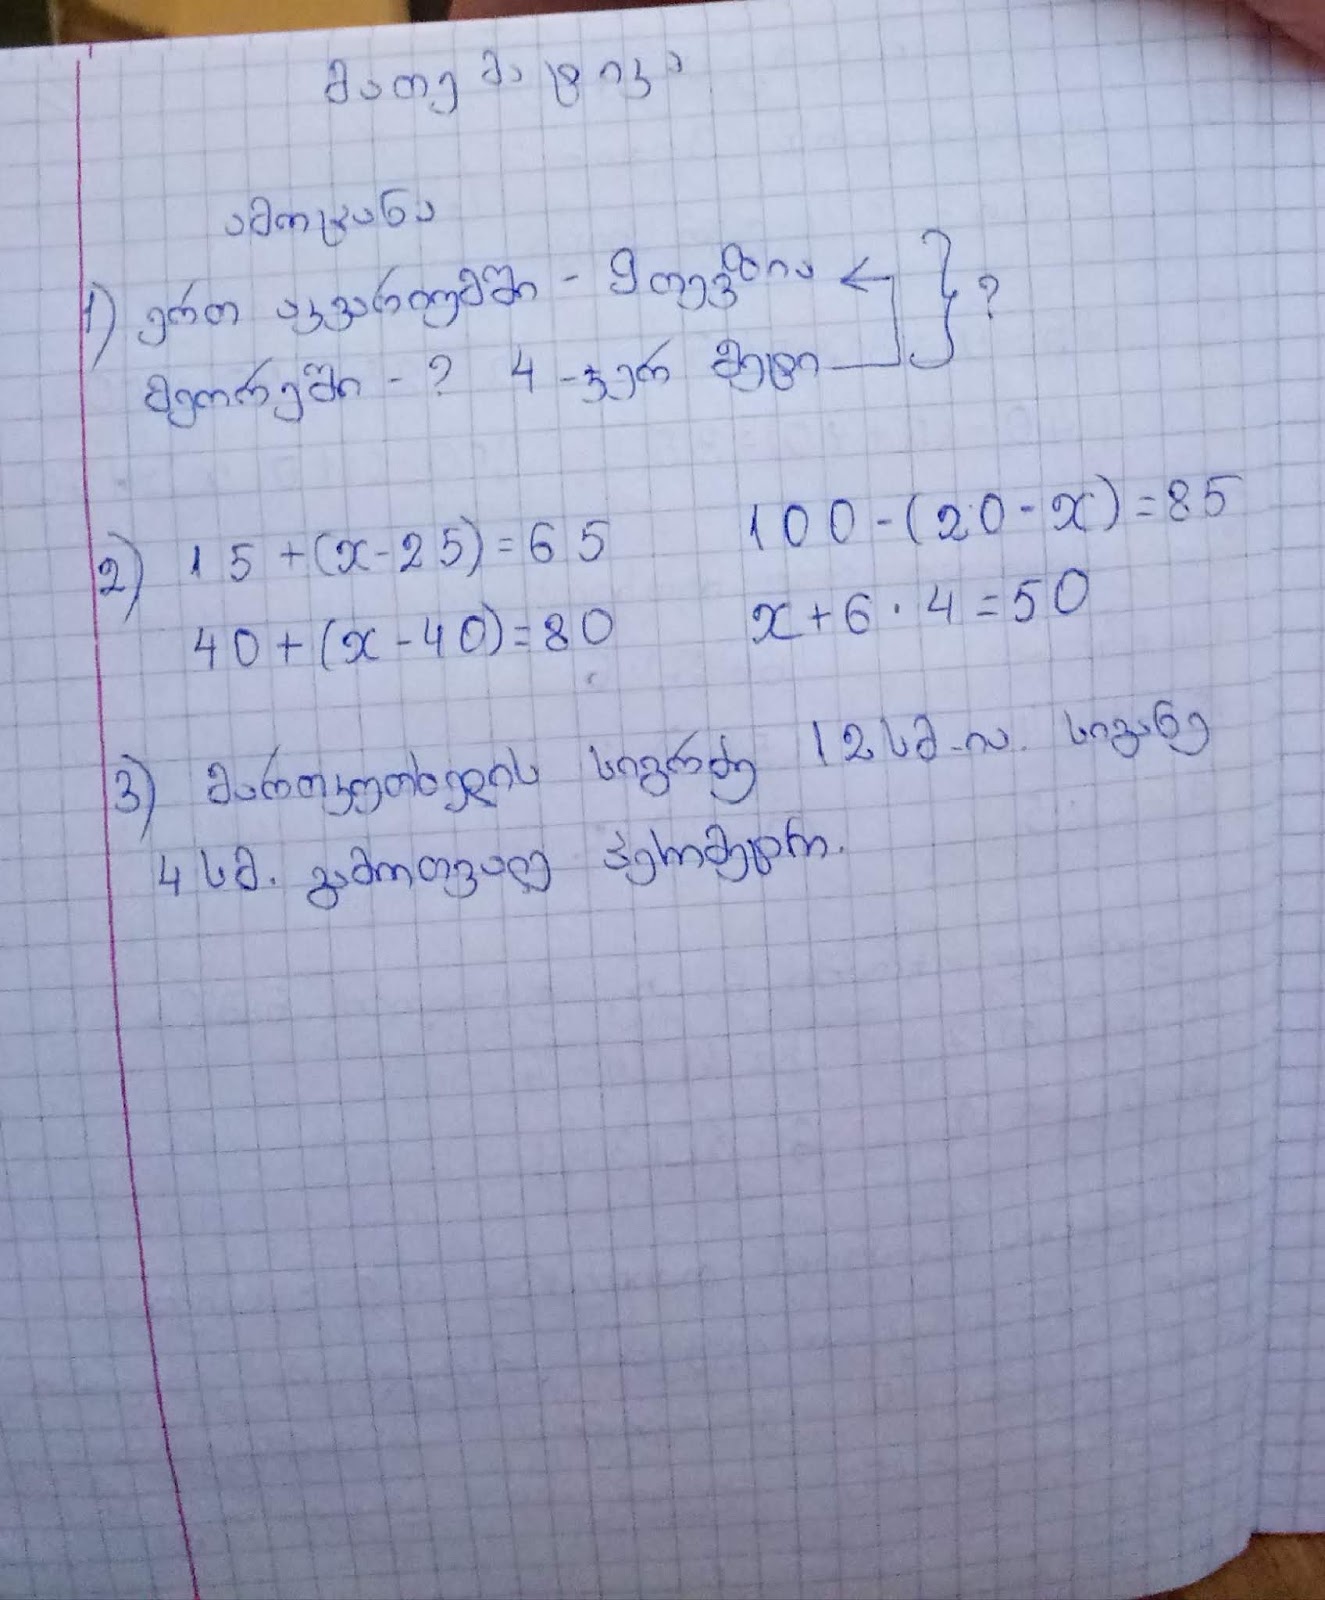 მათემატიკა
ამოცანა
1) ერთ აკვარიუმში - 9 თევზია } ?
მეორეში - ? 4 -ჯერ მეტი
2) 15 + (x - 25) = 65 100 - (20 - x) = 85
40 + (x - 40) = 80 x + 6 · 4 = 50
3) მართკუთხედის სიგრძე 12 სმ-ია. სიგანე
4 სმ. გამოთვალე პერიმეტრი.